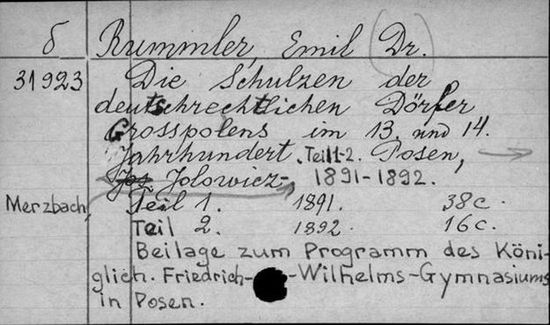 δ Rummler, Emil (Dr.)
31923 Die Schulzen der
deutschrechtlichen Dörfer
Grosspolens im 13. und 14.
Jahrhundert. Teil 1-2. Posen,
Jolowicz, 1891-1892.
Merzbach, Teil 1. 1891. 38c.
Teil 2. 1892. 16c.
Beilage zum Programm des Köni-
glich. Friedrich-Wilhelms-Gymnasiums
in Posen.